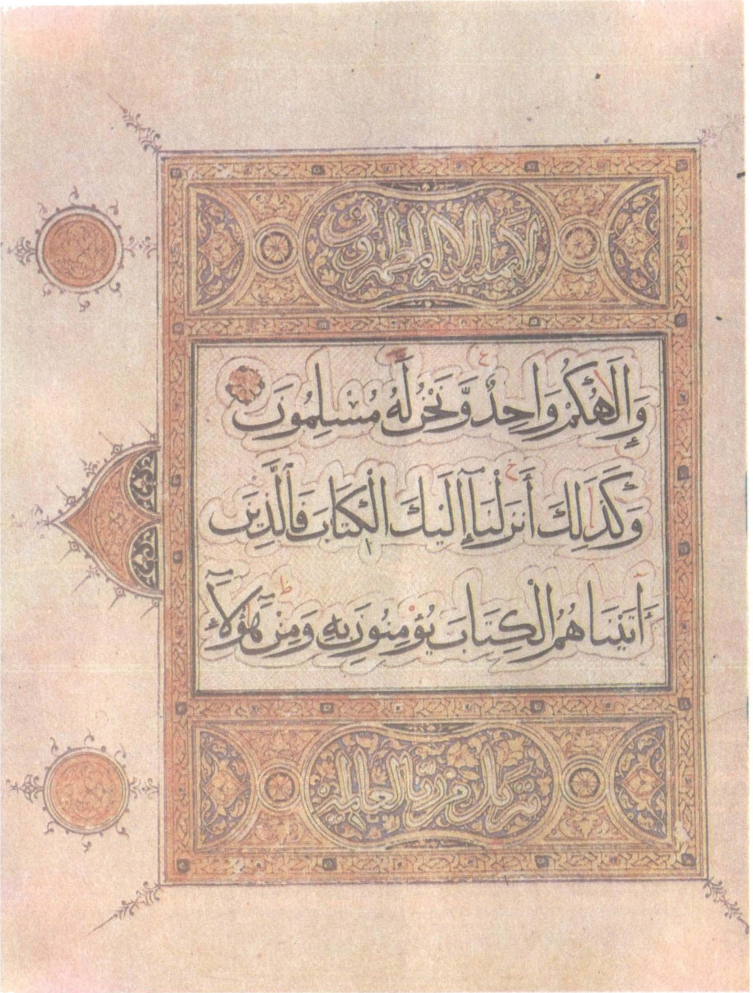 لا يمسه الا المطهرون
وَإِلَاهُكُمْ وَاحِدٌ وَّنَحْنُ لَهُ مُسْلِمُونَ
وَكَذَلِكَ أَنزَلْنَآ إِلَيْكَ الْكِتَابَ فَالَّذِينَ
آتَيْنَاهُمُ الْكِتَابَ يُؤْمِنُونَ بِهِ وَمِنْ هَؤُلَآءِ
تنزيل من رب العالمين